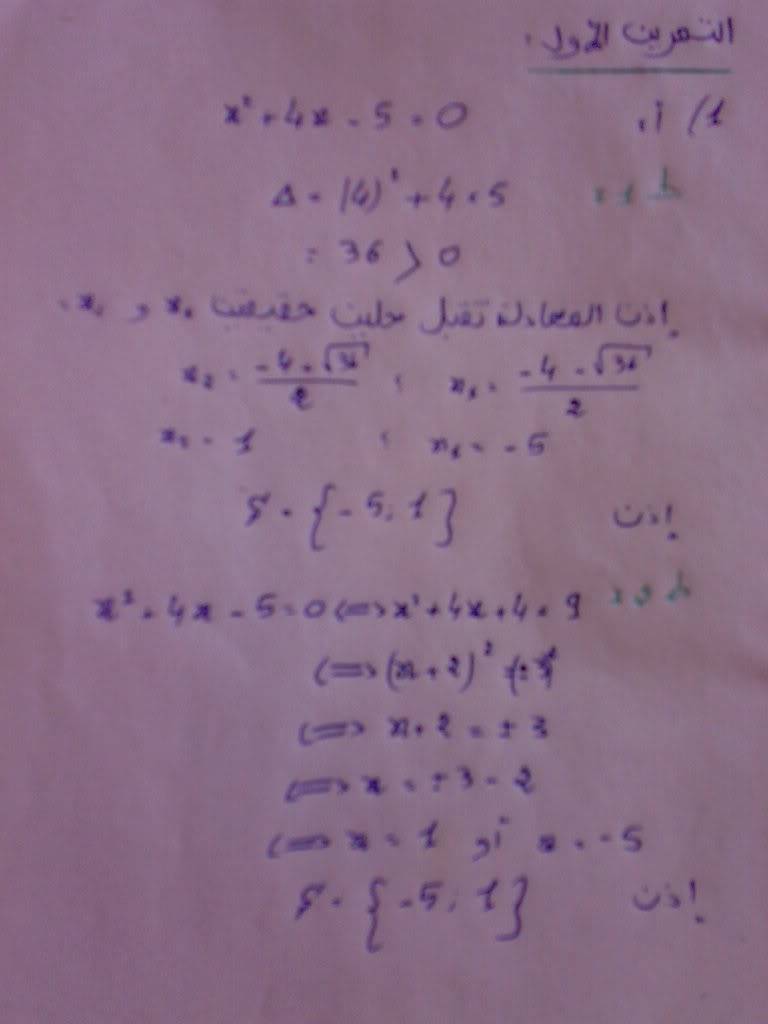 التمرين الأول:
1/ أ. x² + 4x - 5 = 0
ط 1: Δ = (4)² + 4 × 5
= 36 > 0
إذن المعادلة تقبل حلين حقيقيين x₁ و x₂.
x₁ = (-4 - √36)/2 ؛ x₂ = (-4 + √36)/2
x₁ = -5 ؛ x₂ = 1
إذن S = {-5, 1}
ط 2: x² + 4x - 5 = 0 ⟺ x² + 4x + 4 = 9
⟺ (x + 2)²
⟺ x + 2 = ± 3
⟺ x = ± 3 - 2
⟺ x = 1 أو x = -5
إذن S = {-5, 1}